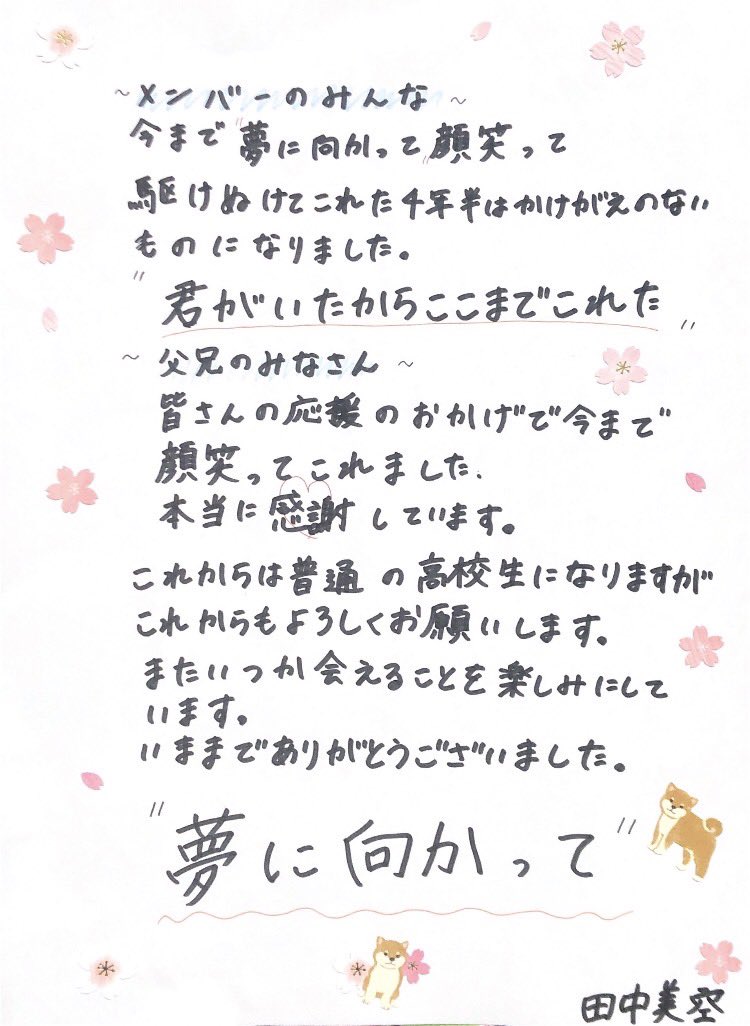 ~メンバーのみんな~
今まで"夢に向かって"顔笑って
駆けぬけてこれた4年半はかけがえのない
ものになりました。
"君がいたからここまでこれた"
~父兄のみなさん~
皆さんの応援のおかげで今まで
顔笑ってこれました.
本当に感謝しています。
これからは普通の高校生になりますが
これからもよろしくお願いします。
またいつか会えることを楽しみにして
います。
いままでありがとうございました。
"夢に向かって"
田中美空